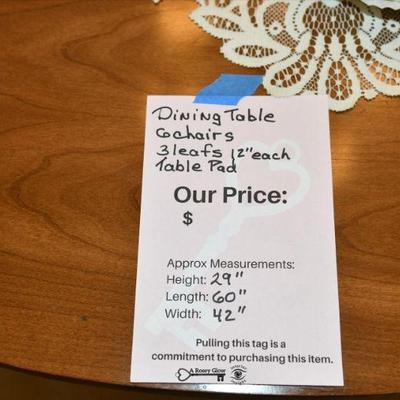 Dining Table
6 chairs
3 leafs 12" each
Table Pad
Our Price:
$
Approx Measurements:
Height: 29"
Length: 60"
Width: 42"
Pulling this tag is a
commitment to purchasing this item.
A Rosey Glow